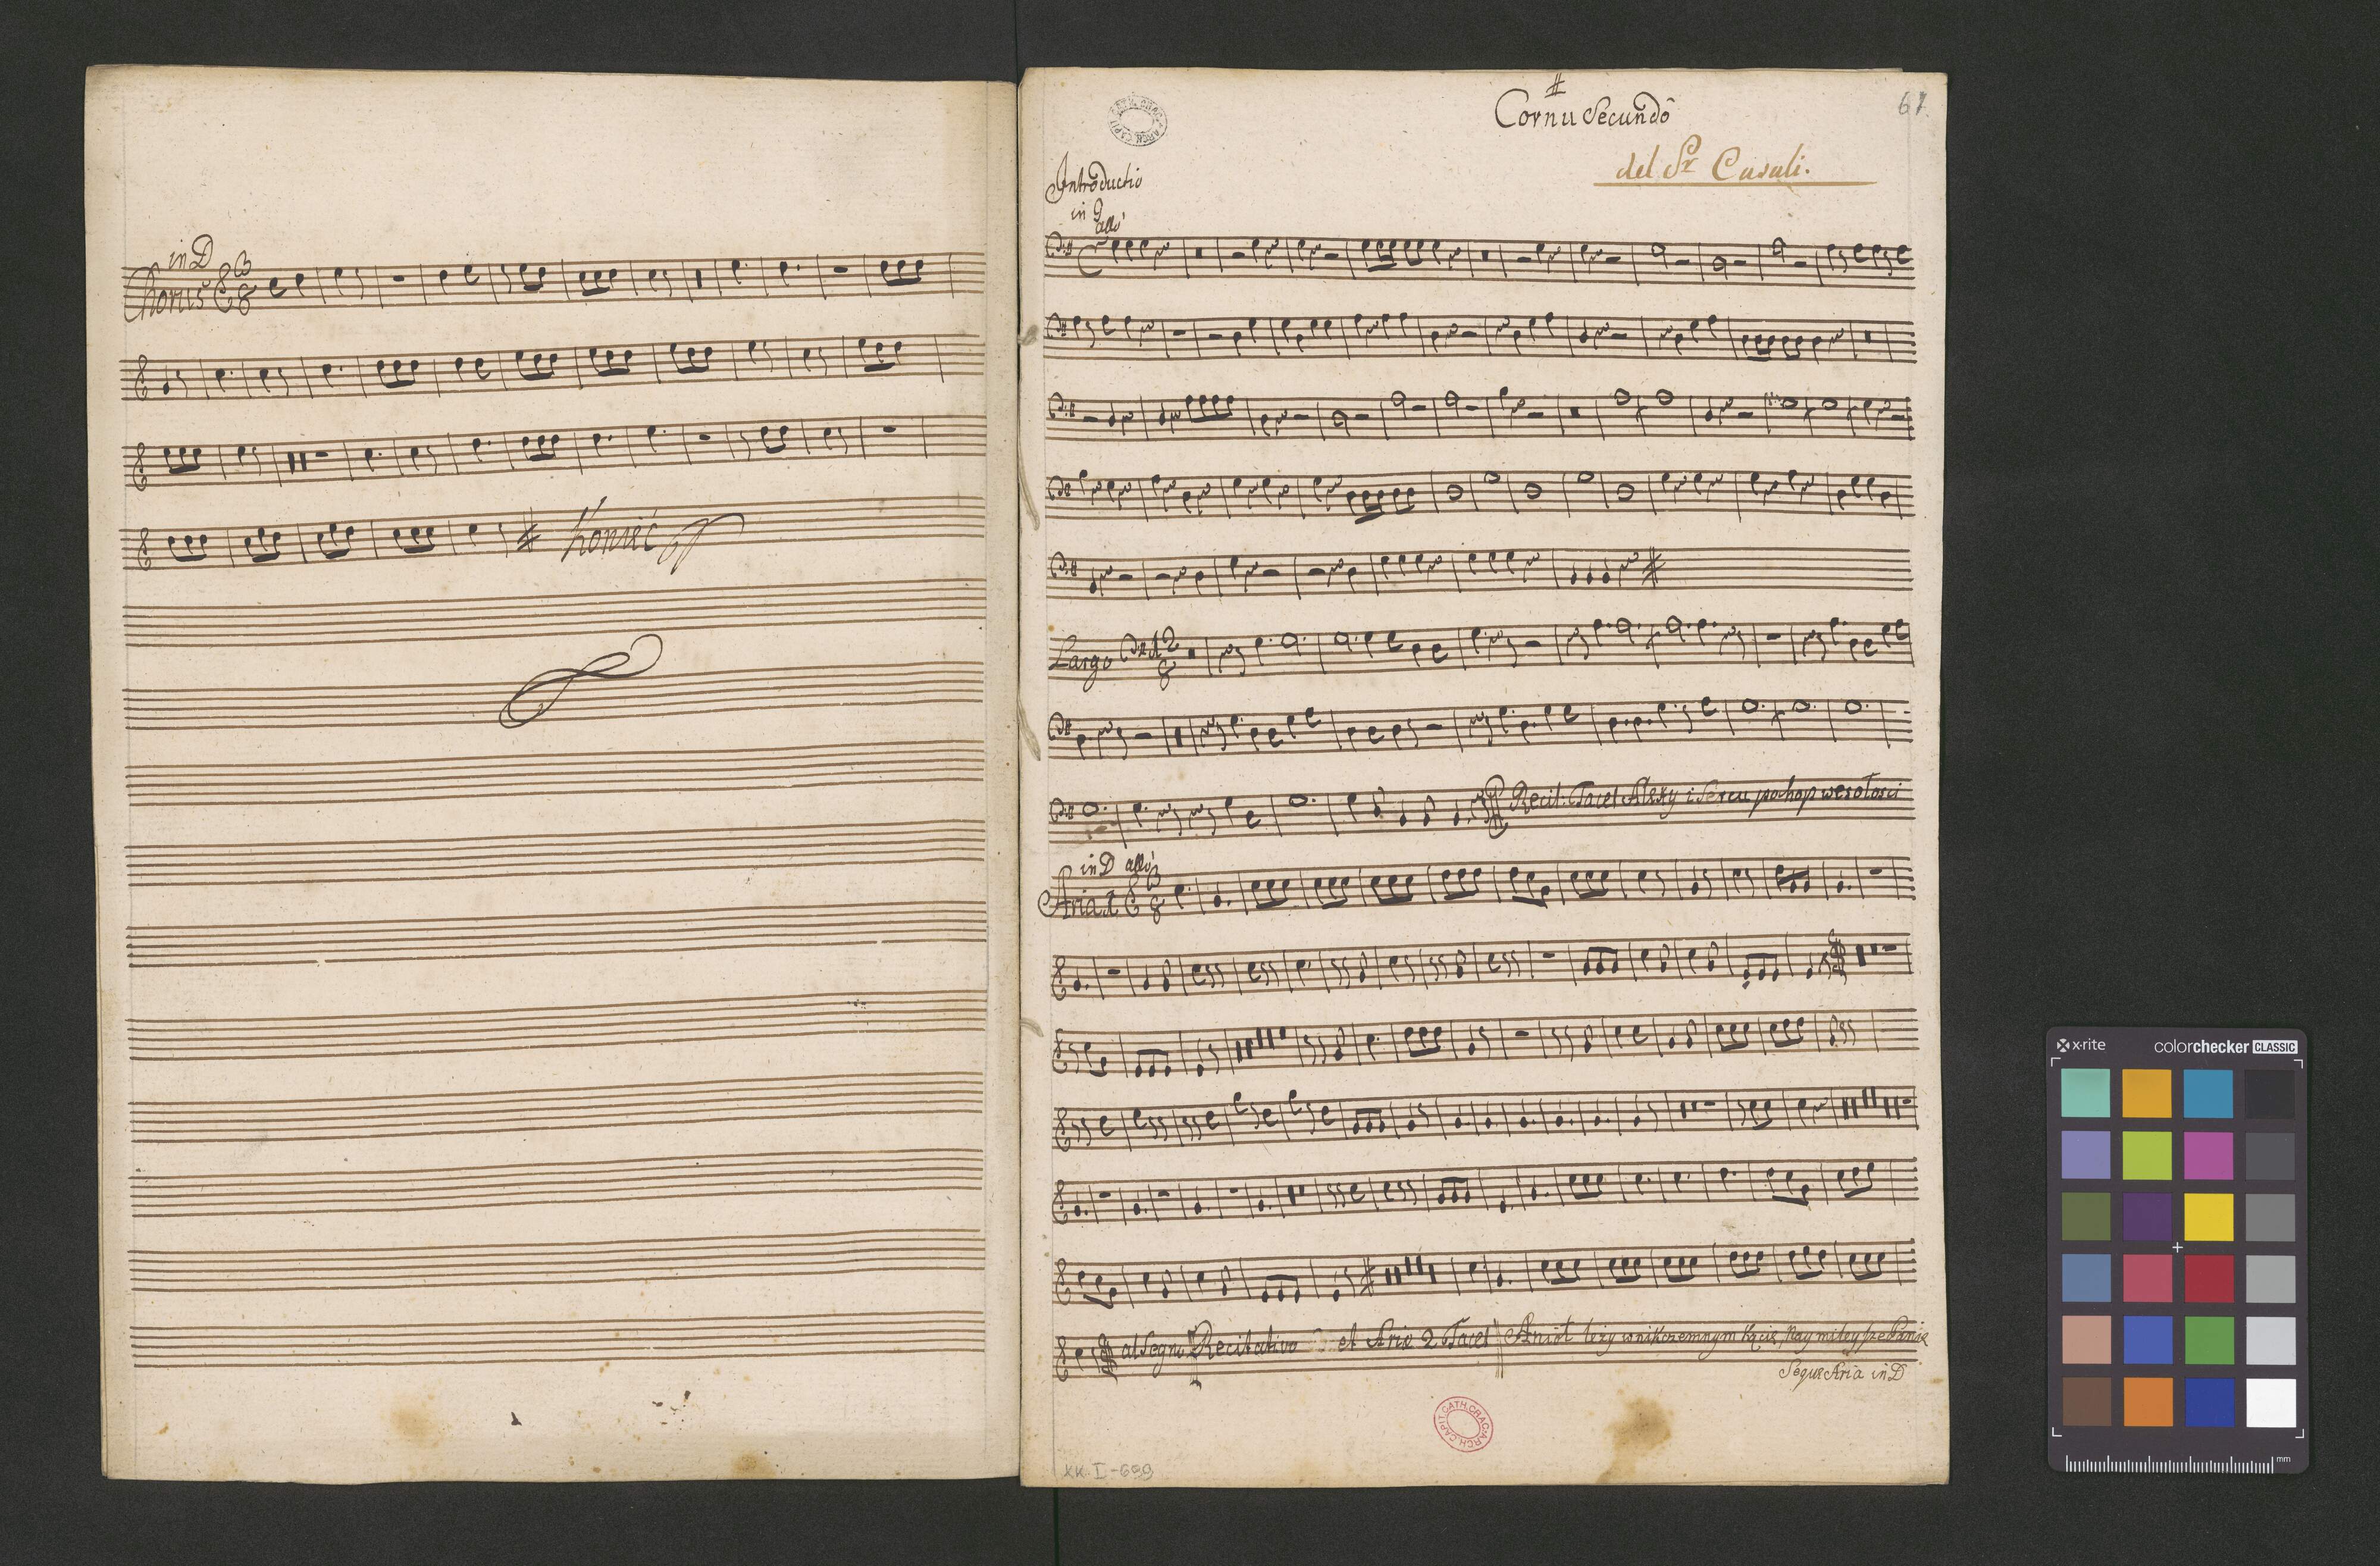 in D
Chorus 3 8
Koniec
Cornu Secundo
67.
del Sr Casali.
Introductio
in G
allo
Largo 12 8
Recit: Tacet
i sercu pochop wesołosci
in D allo
Aria 1 3 8
al Segno Recitativo et Aria 2 Tacet Anioł leży w nikczemnym
Seque Aria in D
ARCH. CAPIT. CATH. CRAC.
ARCH. CAPIT. CATH. CRAC.
KK. I-699
x-rite
colorchecker CLASSIC
mm